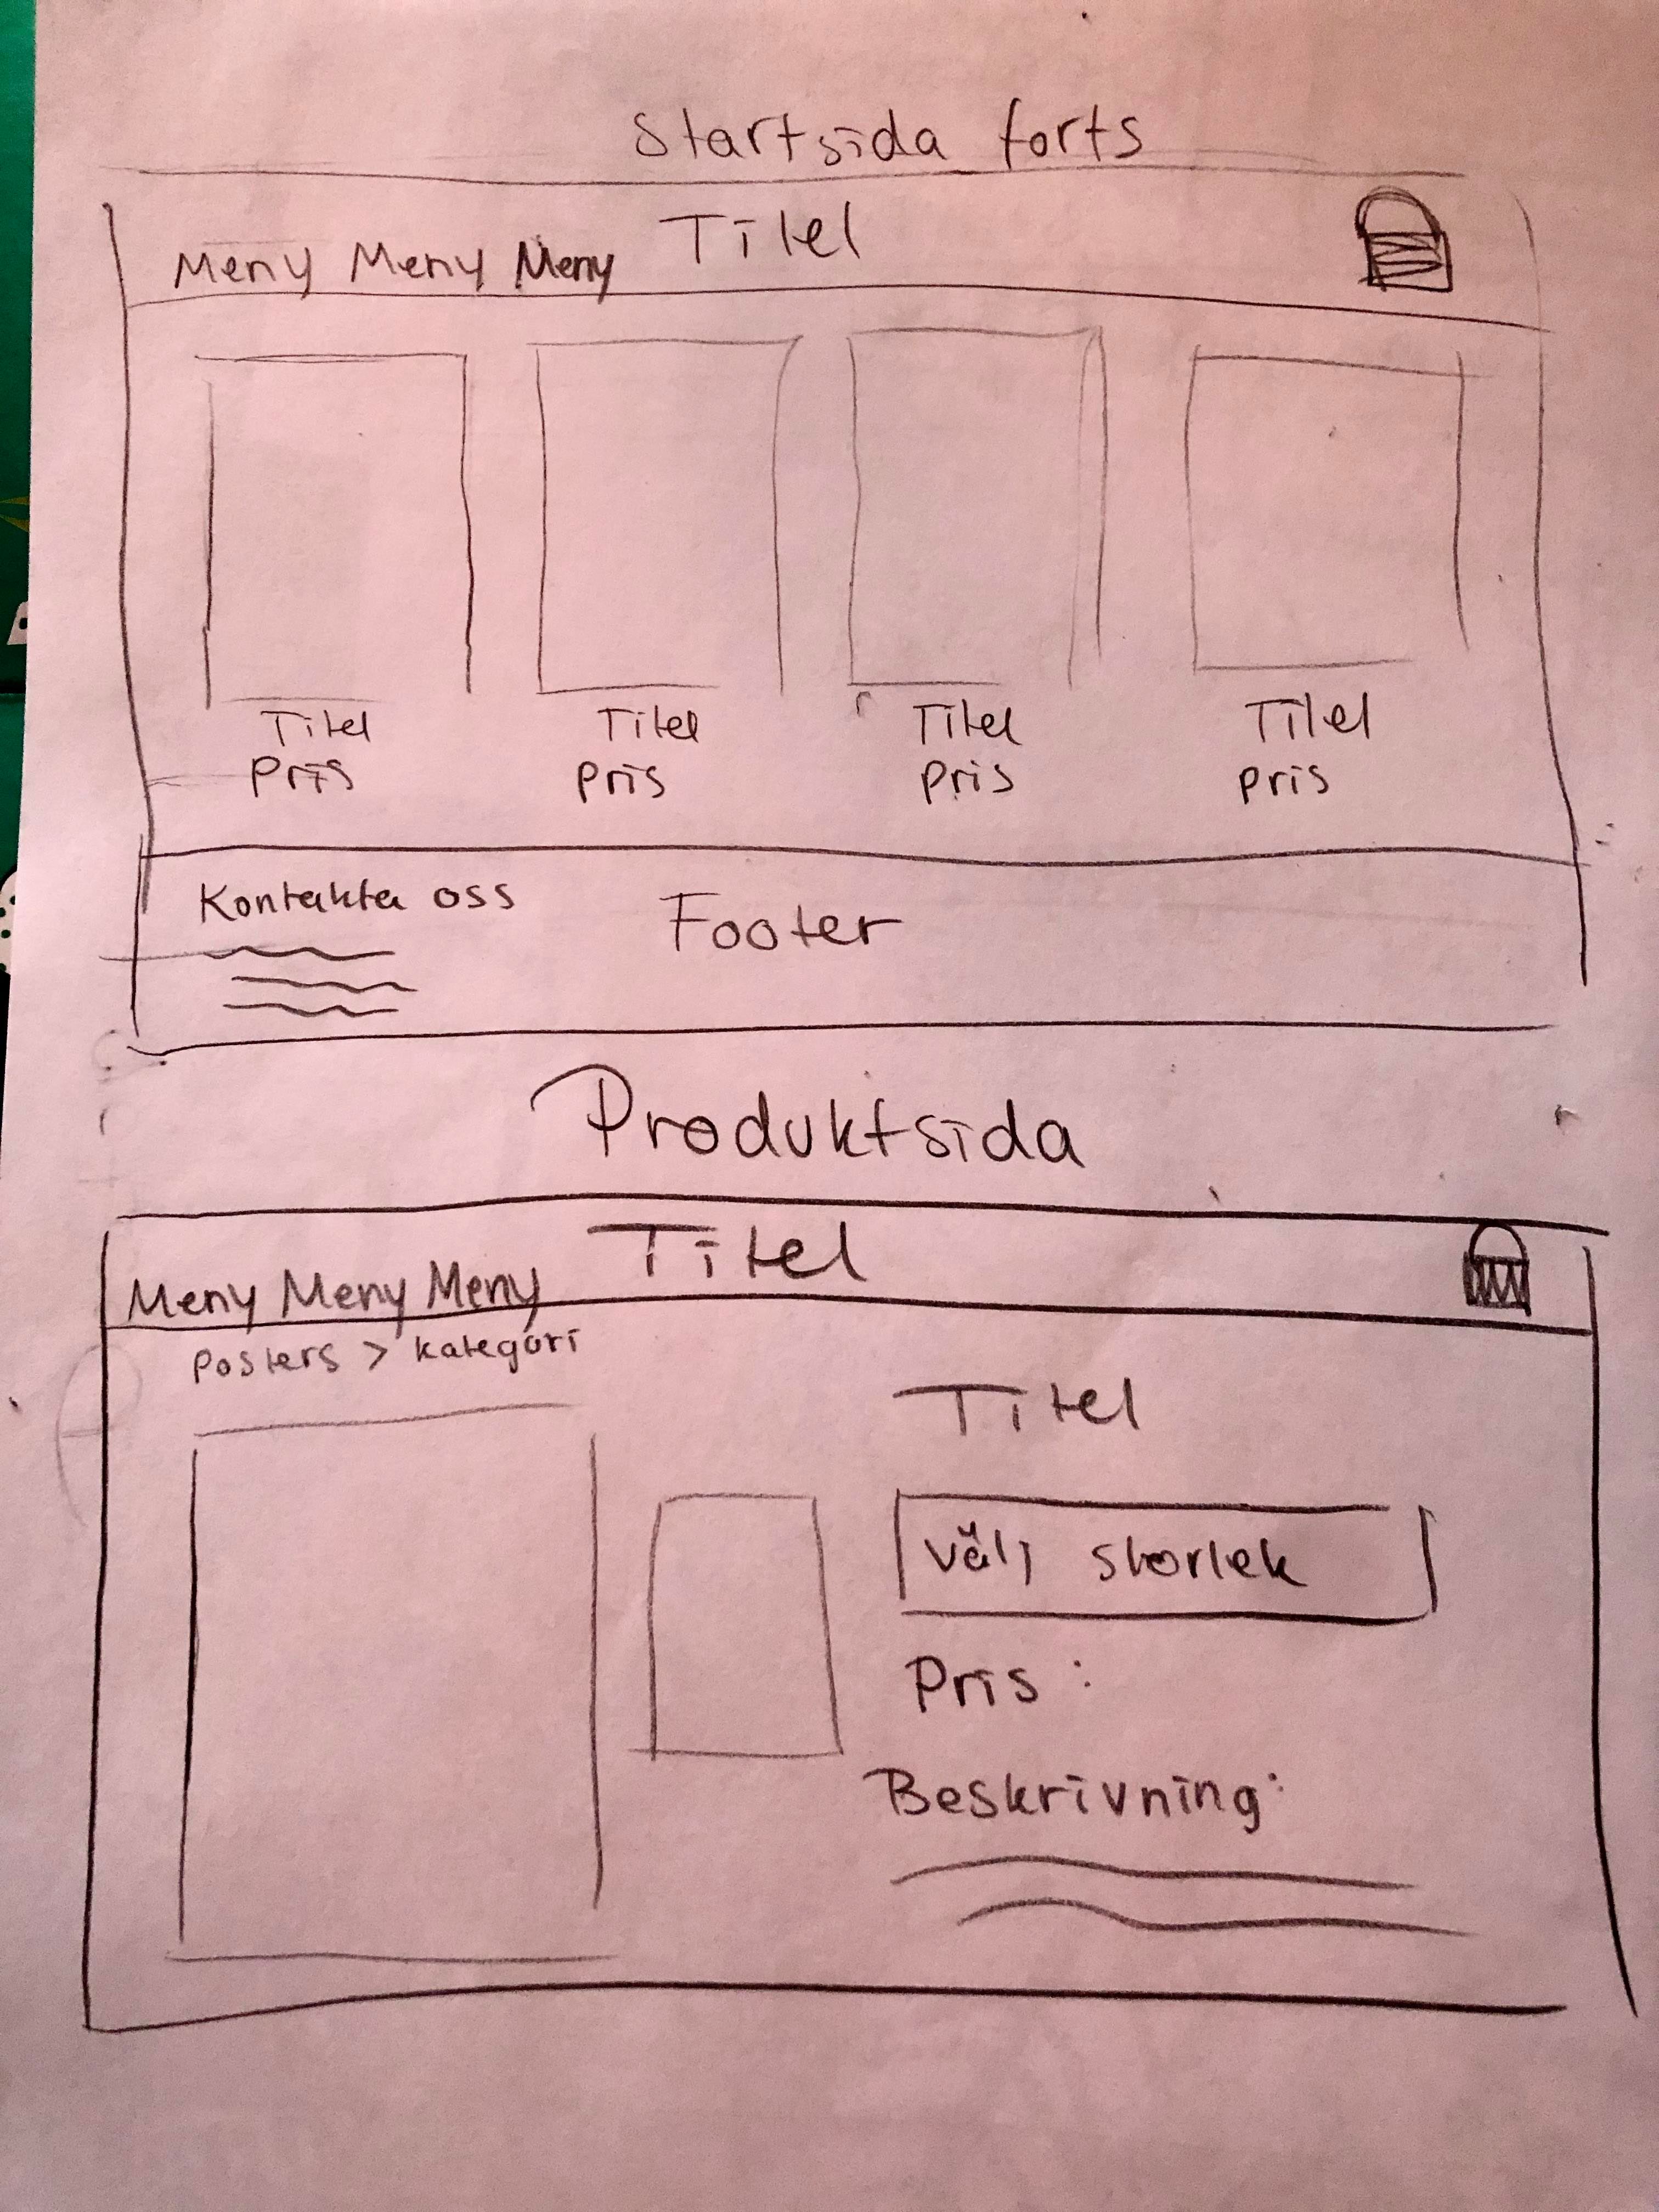 Startsida forts
Meny Meny Meny Titel
Titel Titel Titel Titel
Pris pris pris pris
Kontakta oss Footer
Produktsida
Meny Meny Meny Titel
Posters > kategori
Titel
välj storlek
Pris :
Beskrivning: